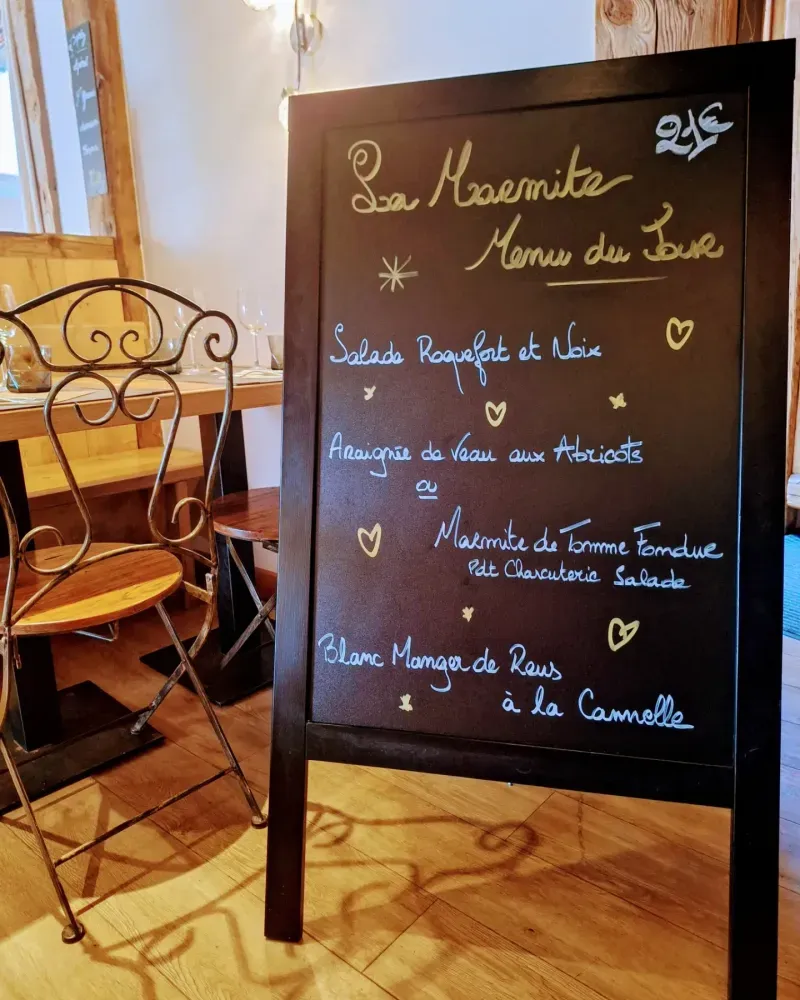 21€
La Marmite
Menu du Jour
Salade Roquefort et Noix
Araignée de Veau aux Abricots
ou
Marmite de Tomme Fondue
Pdt Charcuterie Salade
Blanc Manger de Reus
à la Cannelle